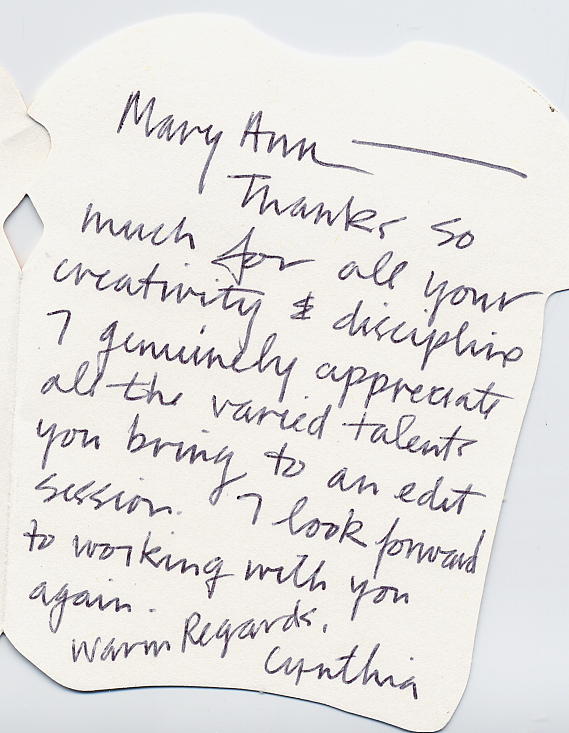 Mary Ann —
Thanks so
much for all your
creativity & discipline
I genuinely appreciate
all the varied talents
you bring to an edit
session. I look forward
to working with you
again.
Warm Regards,
Cynthia